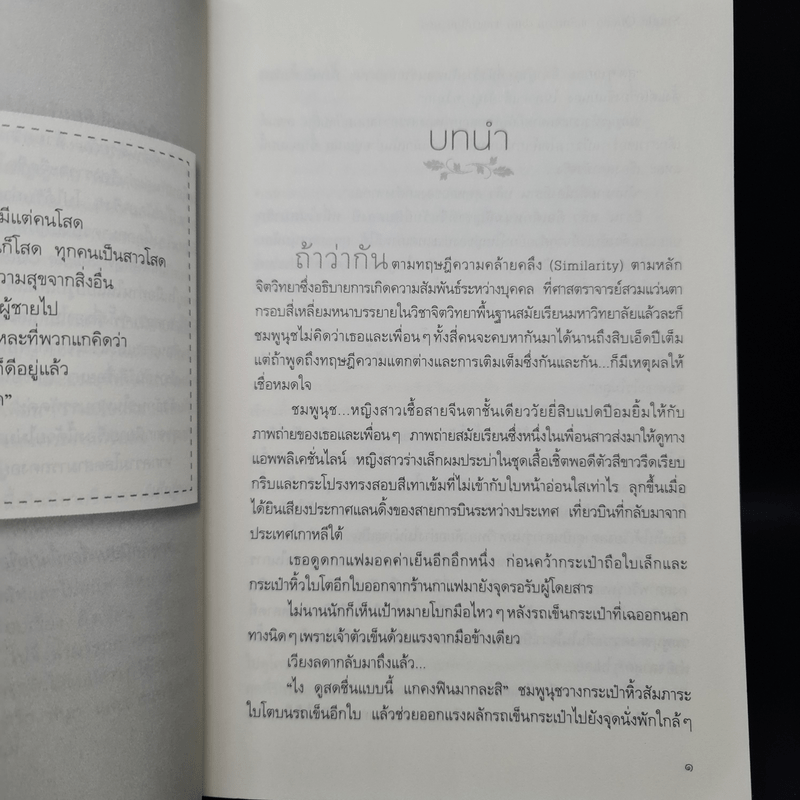 มีแต่คนโสด
ก็โสด ทุกคนเป็นสาวโสด
วามสุขจากสิ่งอื่น
ผู้ชายไป
หละที่พวกแกคิดว่า
ก็ดีอยู่แล้ว
บทนำ
ถ้าว่ากันตามทฤษฎีความคล้ายคลึง (Similarity) ตามหลัก
จิตวิทยาซึ่งอธิบายการเกิดความสัมพันธ์ระหว่างบุคคล ที่ศาสตราจารย์สวมแว่นตา
กรอบสี่เหลี่ยมหนาบรรยายในวิชาจิตวิทยาพื้นฐานสมัยเรียนมหาวิทยาลัยแล้วละก็
ชมพูนุชไม่คิดว่าเธอและเพื่อนๆ ทั้งสี่คนจะคบหากันมาได้นานถึงสิบเอ็ดปีเต็ม
แต่ถ้าพูดถึงทฤษฎีความแตกต่างและการเติมเต็มซึ่งกันและกัน...ก็มีเหตุผลให้
เชื่อหมดใจ
ชมพูนุช...หญิงสาวเชื้อสายจีนตาชั้นเดียววัยยี่สิบแปดปีอมยิ้มให้กับ
ภาพถ่ายของเธอและเพื่อนๆ ภาพถ่ายสมัยเรียนซึ่งหนึ่งในเพื่อนสาวส่งมาให้ดูทาง
แอพพลิเคชั่นไลน์ หญิงสาวร่างเล็กผมประบ่าในชุดเสื้อเชิ้ตพอดีตัวสีขาวรีดเรียบ
กริบและกระโปรงทรงสอบสีเทาเข้มที่ไม่เข้ากับใบหน้าอ่อนใสเท่าไร ลุกขึ้นเมื่อ
ได้ยินเสียงประกาศแลนดิ้งของสายการบินระหว่างประเทศ เที่ยวบินที่กลับมาจาก
ประเทศเกาหลีใต้
เธอดูดกาแฟมอคค่าเย็นอีกอึกหนึ่ง ก่อนคว้ากระเป๋าถือใบเล็กและ
กระเป๋าหิ้วใบโตอีกใบออกจากร้านกาแฟมายังจุดรอรับผู้โดยสาร
ไม่นานนักก็เห็นเป้าหมายโบกมือไหวๆ หลังรถเข็นกระเป๋าที่เฉออกนอก
ทางนิดๆ เพราะเจ้าตัวเข็นด้วยแรงจากมือข้างเดียว
เวียงลดากลับมาถึงแล้ว...
“ไง ดูสดชื่นแบบนี้ แกคงฟินมากละสิ” ชมพูนุชวางกระเป๋าหิ้วสัมภาระ
ใบโตบนรถเข็นอีกใบ แล้วช่วยออกแรงผลักรถเข็นกระเป๋าไปยังจุดนั่งพักใกล้ๆ
๑